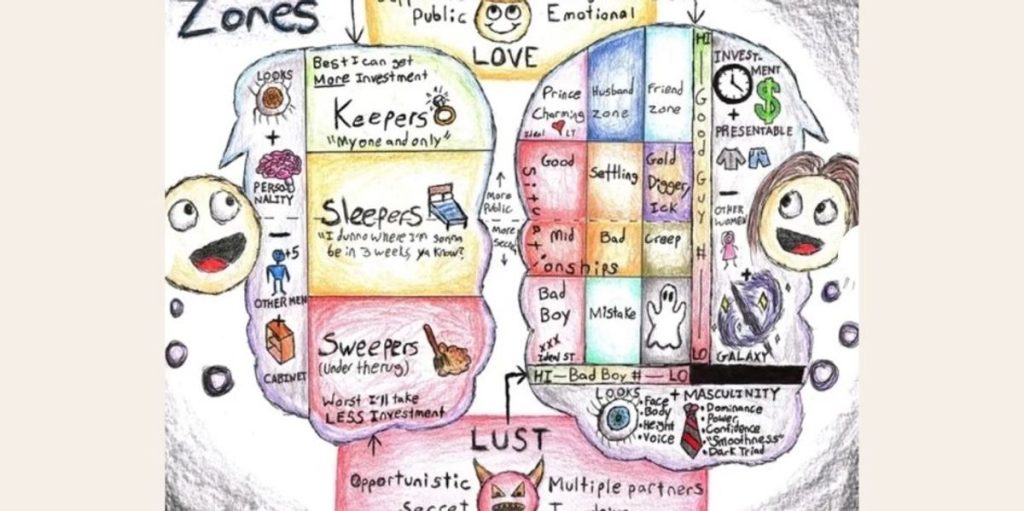 Zones
Public
Emotional
LOVE
LOOKS
+
PERSONALITY
-
+5
OTHER MEN
+
CABINET
Best I can get
More Investment
Keepers
"My one and only"
Sleepers
"I dunno where I'm gonna
be in 3 weeks, ya know?"
Sweepers
(Under the rug)
Worst I'll take
LESS Investment
More
Public
More
Prince
Charming
Ideal LT
Husband
zone
Friend
zone
Good
Settling
Gold
Digger
Ick
Mid
Bad
Creep
Situationships
Bad
Boy
xxx
Ideal ST
Mistake
HI - Good Guy # - LO
HI - Bad Boy # - LO
INVESTMENT
$
+
PRESENTABLE
-
OTHER
WOMEN
+
GALAXY
LOOKS
• Face
• Body
• Height
• Voice
+ MASCULINITY
• Dominance
• Power
• Confidence
• "Smoothness"
• Dark Triad
LUST
Opportunistic
Multiple partners
Secret